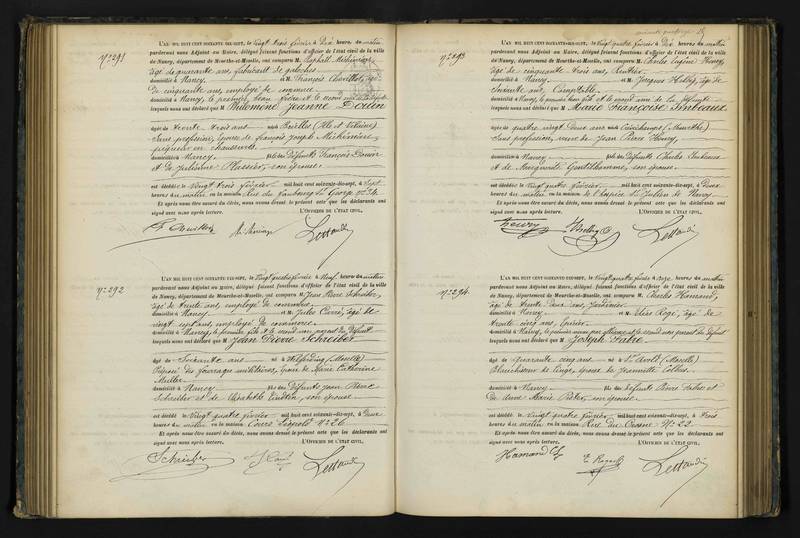 N° 291
L'AN MIL HUIT CENT SOIXANTE-DIX-SEPT, le vingt trois février à Dix heures du matin
pardevant nous Adjoint au Maire, délégué faisant fonctions d'officier de l'état civil de la ville
de Nancy, département de Meurthe-et-Moselle, ont comparu M. Raphaël
âgé de quarante ans, fabricant de galoches
domicilié à Nancy et M. François Chevillot, âgé
de cinquante ans, employé de commerce
domicilié à Nancy, le premier, beau frère et le second
lesquels nous ont déclaré que M Philomène Jeanne Douin
âgée de trente trois ans née à Bruz (Ille et Vilaine)
Sans profession, épouse de françois Joseph
piqueur en chaussures
domicilié à Nancy fille des Défunts François Douin
et de Julienne Plessier, son épouse
est décédée le vingt trois février mil huit cent soixante-dix-sept, à Sept
heures du matin en la maison rue du Faubourg St George N° 34.
Et après nous être assuré du décès, nous avons dressé le présent acte que les déclarants ont
signé avec nous après lecture. L'OFFICIER DE L'ÉTAT CIVIL,
N° 292
L'AN MIL HUIT CENT SOIXANTE-DIX-SEPT, le Vingt quatre février à Neuf heures du matin
pardevant nous Adjoint au Maire, délégué faisant fonctions d'officier de l'état civil de la ville
de Nancy, département de Meurthe-et-Moselle, ont comparu M. Jean Pierre Schreiber,
âgé de trente ans, employé de commerce
domicilié à Nancy et M. Jules Curé, âgé de
vingt sept ans, employé de commerce
domicilié à Nancy, le premier fils et le second non parent du défunt
lesquels nous ont déclaré que M Jean Pierre Schreiber
âgé de Soixante ans né à (Moselle)
Préposé des fourrages militaires, époux de Marie Catherine
Muller
domicilié à Nancy fils des Défunts Jean Pierre
Schreiber et de Elisabeth Linden, son épouse
est décédé le Vingt quatre février mil huit cent soixante-dix-sept, à Deux
heures du matin en la maison Cours Léopold N° 26
Et après nous être assuré du décès, nous avons dressé le présent acte que les déclarants ont
signé avec nous après lecture. L'OFFICIER DE L'ÉTAT CIVIL,
Schreiber
N° 293
L'AN MIL HUIT CENT SOIXANTE-DIX-SEPT, le Vingt quatre février à Dix heures du matin
pardevant nous Adjoint au Maire, délégué faisant fonctions d'officier de l'état civil de la ville
de Nancy, département de Meurthe-et-Moselle, ont comparu M. Charles Eugène Henry,
âgé de cinquante trois ans, Rentier
domicilié à Nancy et M. Jacques Hellig, âgé de
Soixante ans, Comptable
domicilié à Nancy, le premier fils et le second ami de la défunte
lesquels nous ont déclaré que M Marie Françoise Imbeaux
âgée de quatre vingt Deux ans née à (Meurthe)
Sans profession, veuve de Jean Pierre Henry
domicilié à Nancy fille des Défunts Charles Imbeaux
et de Marguerite Gentilhomme, son épouse
est décédée le Vingt quatre février mil huit cent soixante-dix-sept, à Deux
heures du matin en la maison de l'hospice St Julien de Nancy
Et après nous être assuré du décès, nous avons dressé le présent acte que les déclarants ont
signé avec nous après lecture. L'OFFICIER DE L'ÉTAT CIVIL,
henry
N° 294
L'AN MIL HUIT CENT SOIXANTE-DIX-SEPT, le Vingt quatre février à onze heures du matin
pardevant nous Adjoint au Maire, délégué faisant fonctions d'officier de l'état civil de la ville
de Nancy, département de Meurthe-et-Moselle, ont comparu M. Charles Hamand,
âgé de trente Deux ans, Jardinier
domicilié à Nancy et M. Rogé, âgé de
trente cinq ans, Epicier
domicilié à Nancy, le premier neveu par alliance et le second non parent du défunt
lesquels nous ont déclaré que M Joseph Fabre
âgé de quarante cinq ans né à St Avold (Moselle)
Blanchisseur de linge, époux de Jeannette Collin
domicilié à Nancy fils des Défunts Pierre Fabre et
de Anne Marie, son épouse
est décédé le Vingt quatre février mil huit cent soixante-dix-sept, à trois
heures du matin en la maison Rue du Crosne N° 22
Et après nous être assuré du décès, nous avons dressé le présent acte que les déclarants ont
signé avec nous après lecture. L'OFFICIER DE L'ÉTAT CIVIL,
Hamand Ch